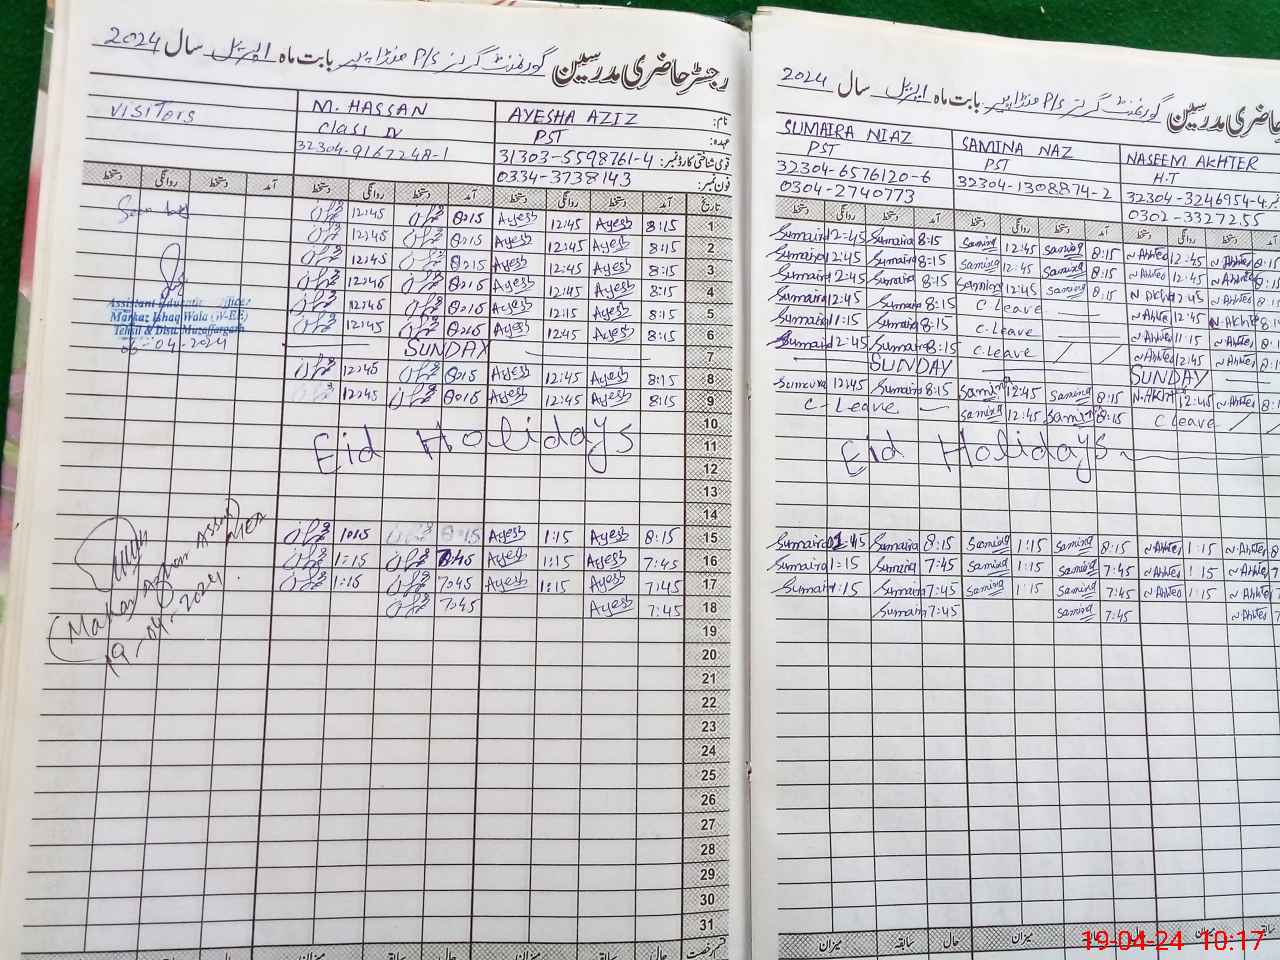 رجسٹر حاضری مدرسین گورنمنٹ گرلز P/S منڈا پیر بابت ماہ اپریل سال 2024
نام: AYESHA AZIZ M. HASSAN VISITORS
عہدہ: PST Class IV
قومی شناختی کارڈ نمبر: 31303-5598761-4 32304-9167248-1
فون نمبر: 0334-3738143
تاریخ آمد دستخط روانگی دستخط آمد دستخط روانگی دستخط آمد دستخط روانگی دستخط
1 8:15 Ayesh 12:45 Ayesh 8:15 12:45
2 8:15 Ayesh 12:45 Ayesh 8:15 12:45
3 8:15 Ayesh 12:45 Ayesh 8:15 12:45
4 8:15 Ayesh 12:45 Ayesh 8:15 12:45
5 8:15 Ayesh 12:15 Ayesh 8:15 12:45
6 8:15 Ayesh 12:45 Ayesh 8:15 12:45
7 SUNDAY
8 8:15 Ayesh 12:45 Ayesh 8:15 12:45
9 8:15 Ayesh 12:45 Ayesh 8:15 12:45
10
11 Eid Holidays
12
13
14
15 8:15 Ayesh 1:15 Ayesh 8:15 1:15
16 7:45 Ayesh 1:15 Ayesh 7:45 1:15
17 7:45 Ayesh 1:15 Ayesh 7:45 1:15
18 7:45 Ayesh 7:45
19
20
21
22
23
24
25
26
27
28
29
30
31
Assistant Education Officer
Markaz Ishaq Wala (W-EE)
Tehsil & Distt. Muzaffargarh
06-04-2024
19-04-2024
میزان سابقہ حال میزان سابقہ حال قسم رخصت
حاضری مدرسین گورنمنٹ گرلز P/S منڈا پیر بابت ماہ اپریل سال 2024
NASEEM AKHTER SAMINA NAZ SUMAIRA NIAZ
H.T PST PST
32304-3246954-4 32304-1308874-2 32304-6576120-6
0302-3327255 0304-2740773
دستخط روانگی دستخط آمد دستخط روانگی دستخط آمد دستخط روانگی دستخط
Sumaira 12:45 Sumaira 8:15 Samina 12:45 Samina 8:15 N Akhter 12:45 N Akhter 8:15
Sumaira 12:45 Sumaira 8:15 Samina 12:45 Samina 8:15 N Akhter 12:45 N Akhter 8:1
Sumaira 12:45 Sumaira 8:15 Samina 12:45 Samina 8:15 N Akhter 12:45 N Akhter 8:
Sumaira 12:45 Sumaira 8:15 C.Leave N Akhter 12:45 N Akhter 8:1
Sumaira 11:15 Sumaira 8:15 C.Leave N Akhter 11:15 N Akhter 8:
Sumaira 12:45 Sumaira 8:15 C.Leave N Akhter 12:45 N Akhter 8:
SUNDAY SUNDAY
Sumaira 12:45 Sumaira 8:15 Samina 12:45 Samina 8:15 N Akhter 12:45 N Akhter 8:
C-Leave Samina 12:45 Samina 8:15 C Leave
Eid Holidays
Sumaira 1:45 Sumaira 8:15 Samina 1:15 Samina 8:15 N Akhter 1:15 N Akhter 8
Sumaira 1:15 Sumaira 7:45 Samina 1:15 Samina 7:45 N Akhter 1:15 N Akhter 7
Sumaira 1:15 Sumaira 7:45 Samina 1:15 Samina 7:45 N Akhter 1:15 N Akhter 7
Sumaira 7:45 Samina 7:45 N Akhter 7
میزان سابقہ حال میزان سابقہ حال میزان سابقہ
19-04-24 10:17